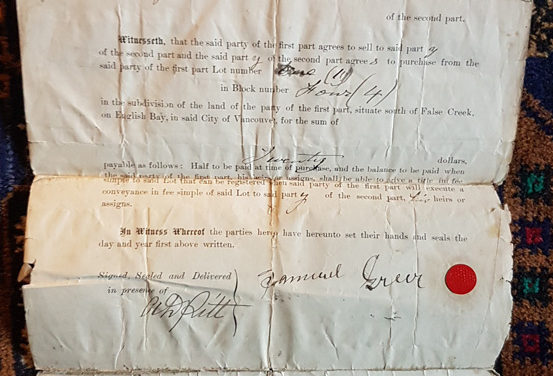 of the second part.
Witnesseth, that the said party of the first part agrees to sell to said party
of the second part and the said party of the second part agrees to purchase from the
said party of the first part Lot number One (1)
in Block number Four (4)
in the subdivision of the land of the party of the first part, situate south of False Creek,
on English Bay, in said City of Vancouver, for the sum of
Twenty dollars,
payable as follows: Half to be paid at time of purchase, and the balance to be paid when
the said party of the first part, his heirs or assigns, shall be able to give a title in fee
simple to said Lot that can be registered when said party of the first part will execute a
conveyance in fee simple of said Lot to said party of the second part, his heirs or
assigns.
In Witness Whereof the parties hereto have hereunto set their hands and seals the
day and year first above written.
Signed, Sealed and Delivered
in presence of
Samuel Greer